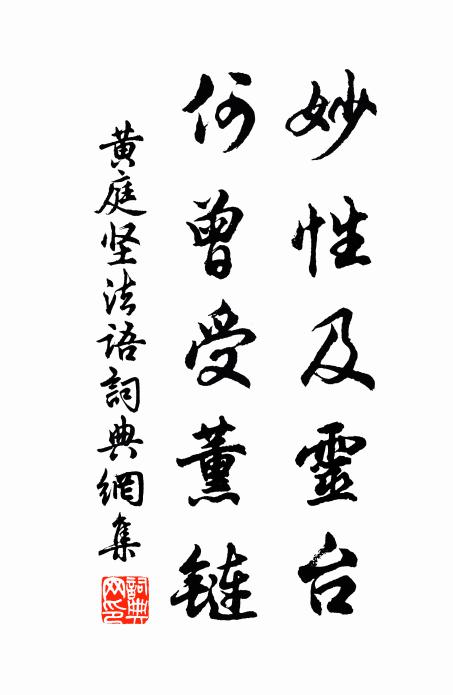 妙性及靈台
何曾受薰鏈
黃庭坚法语詞典網集
詞典網印